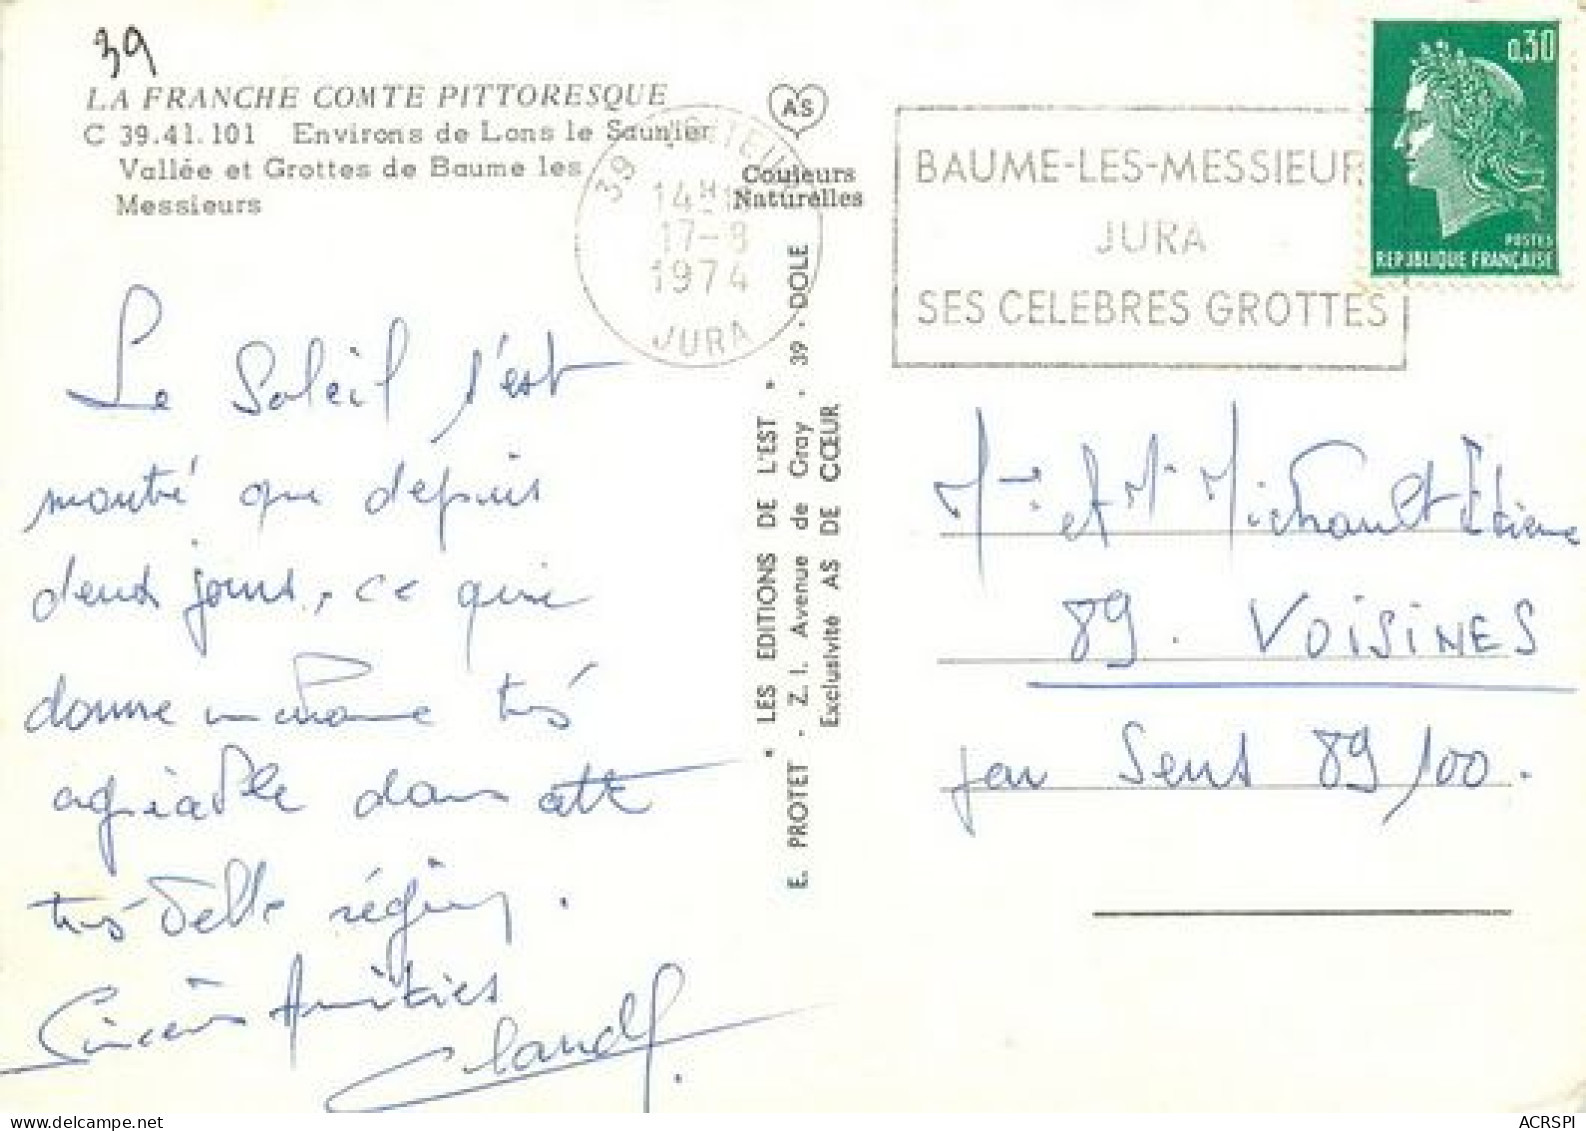 39
LA FRANCHE COMTE PITTORESQUE
C 39.41.101 Environs de Lons le Saunier
Vallée et Grottes de Baume les
Messieurs
AS
Couleurs
Naturelles
39
14H
17-8
1974
JURA
BAUME-LES-MESSIEUR
JURA
SES CELEBRES GROTTES
0,30
POSTES
REPUBLIQUE FRANÇAISE
Le Soleil s'est
montré que depuis
deux jours, ce qui
donne un charme très
agréable dans cette
très belle région.
Sincères Amitiés
* LES EDITIONS DE L'EST *
E. PROTET - Z. I. Avenue de Gray - 39 - DOLE
Exclusivité AS DE CŒUR
Mme et Mr Michault Etienne
89. VOISINES
par Sens 89100.
delcampe.net
ACRSPI